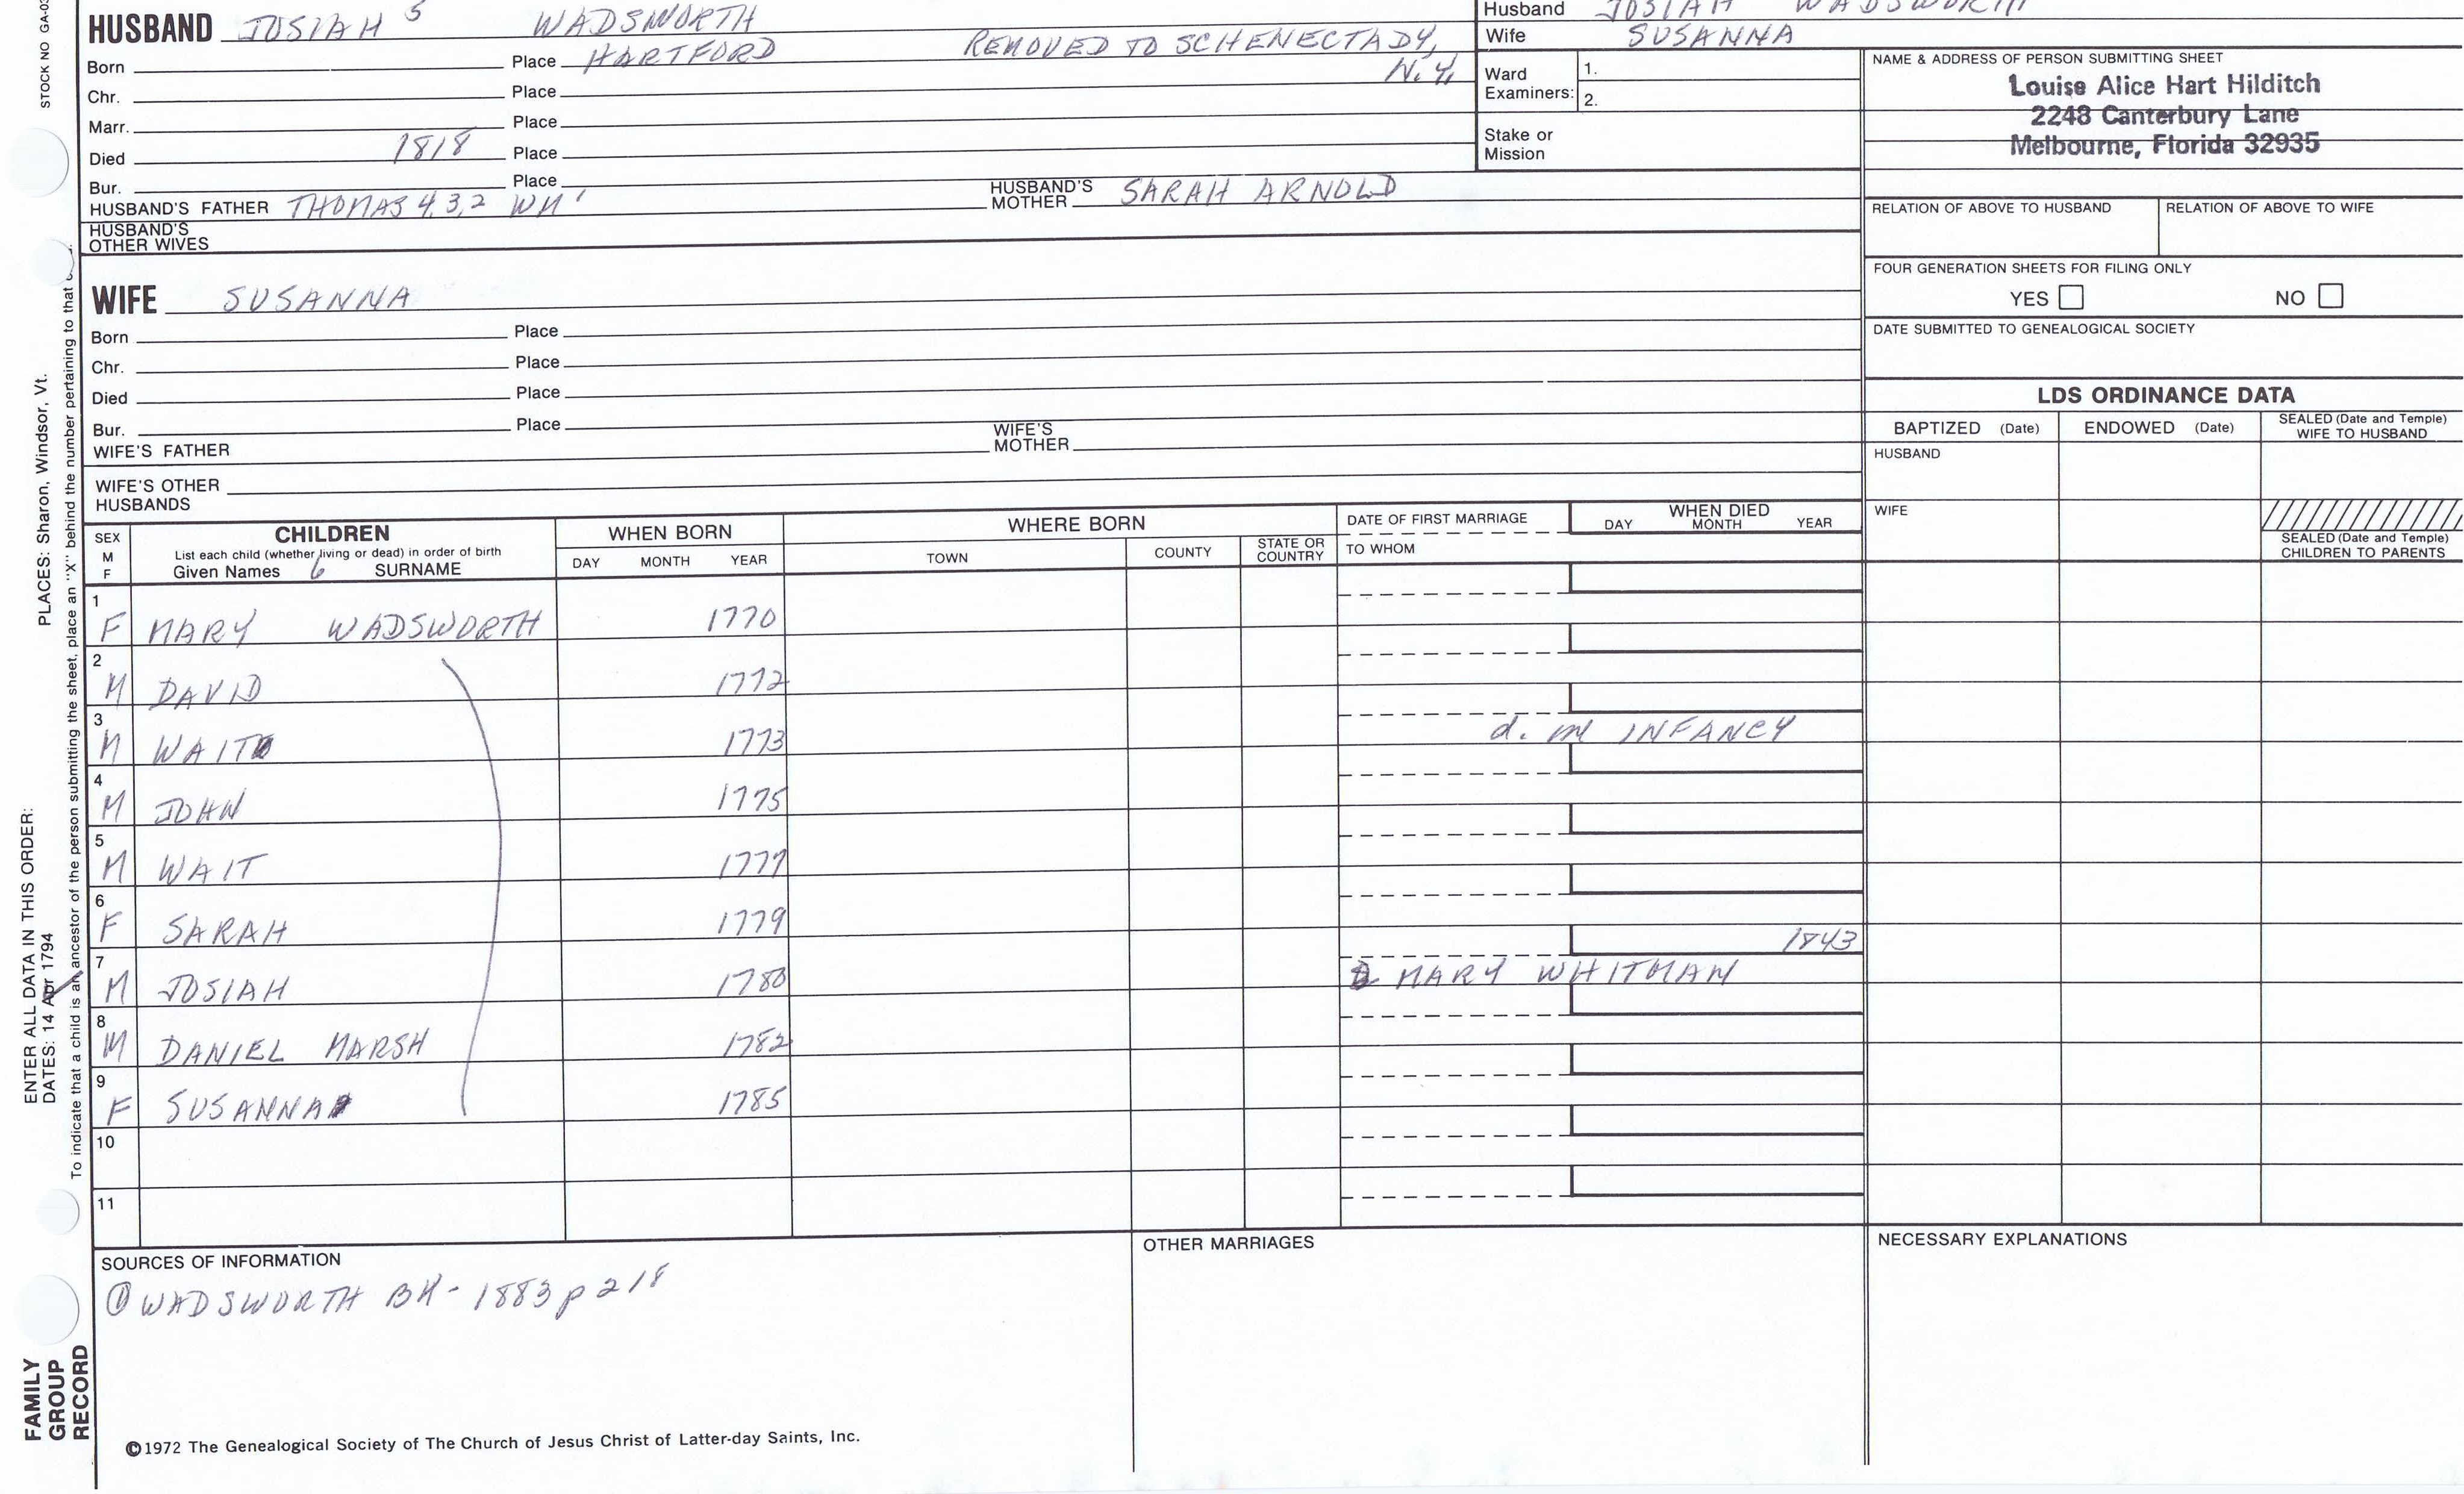 STOCK NO GA-03
HUSBAND JOSIAH 5 WADSWORTH
Born Place HARTFORD REMOVED TO SCHENECTADY,
N.Y.
Chr. Place
Marr. Place
Died 1818 Place
Bur. Place
HUSBAND'S FATHER THOMAS 4,3,2 WM 1 HUSBAND'S MOTHER SARAH ARNOLD
HUSBAND'S
OTHER WIVES
Husband JOSIAH WADSWORTH
Wife SUSANNA
Ward
Examiners: 1.
2.
Stake or
Mission
NAME & ADDRESS OF PERSON SUBMITTING SHEET
Louise Alice Hart Hilditch
2248 Canterbury Lane
Melbourne, Florida 32935
RELATION OF ABOVE TO HUSBAND RELATION OF ABOVE TO WIFE
FOUR GENERATION SHEETS FOR FILING ONLY
YES NO
DATE SUBMITTED TO GENEALOGICAL SOCIETY
WIFE SUSANNA
Born Place
Chr. Place
Died Place
Bur. Place
WIFE'S FATHER WIFE'S MOTHER
WIFE'S OTHER
HUSBANDS
LDS ORDINANCE DATA
BAPTIZED (Date) ENDOWED (Date) SEALED (Date and Temple)
WIFE TO HUSBAND
HUSBAND
WIFE
SEALED (Date and Temple)
CHILDREN TO PARENTS
SEX
M
F
CHILDREN
List each child (whether living or dead) in order of birth
Given Names 6 SURNAME
WHEN BORN
DAY MONTH YEAR
WHERE BORN
TOWN COUNTY STATE OR COUNTRY
DATE OF FIRST MARRIAGE
TO WHOM
WHEN DIED
DAY MONTH YEAR
1 F MARY WADSWORTH 1770
2 M DAVID 1772
3 M WAIT 1773 d. in INFANCY
4 M JOHN 1775
5 M WAIT 1777
6 F SARAH 1779
7 M JOSIAH 1780 MARY WHITMAN 1843
8 M DANIEL MARSH 1782
9 F SUSANNA 1785
10
11
SOURCES OF INFORMATION
① WADSWORTH BK - 1883 p 218
OTHER MARRIAGES
NECESSARY EXPLANATIONS
©1972 The Genealogical Society of The Church of Jesus Christ of Latter-day Saints, Inc.
ENTER ALL DATA IN THIS ORDER: PLACES: Sharon, Windsor, Vt.
DATES: 14 Apr 1794
To indicate that a child is an ancestor of the person submitting the sheet, place an "X" behind the number pertaining to that
FAMILY
GROUP
RECORD